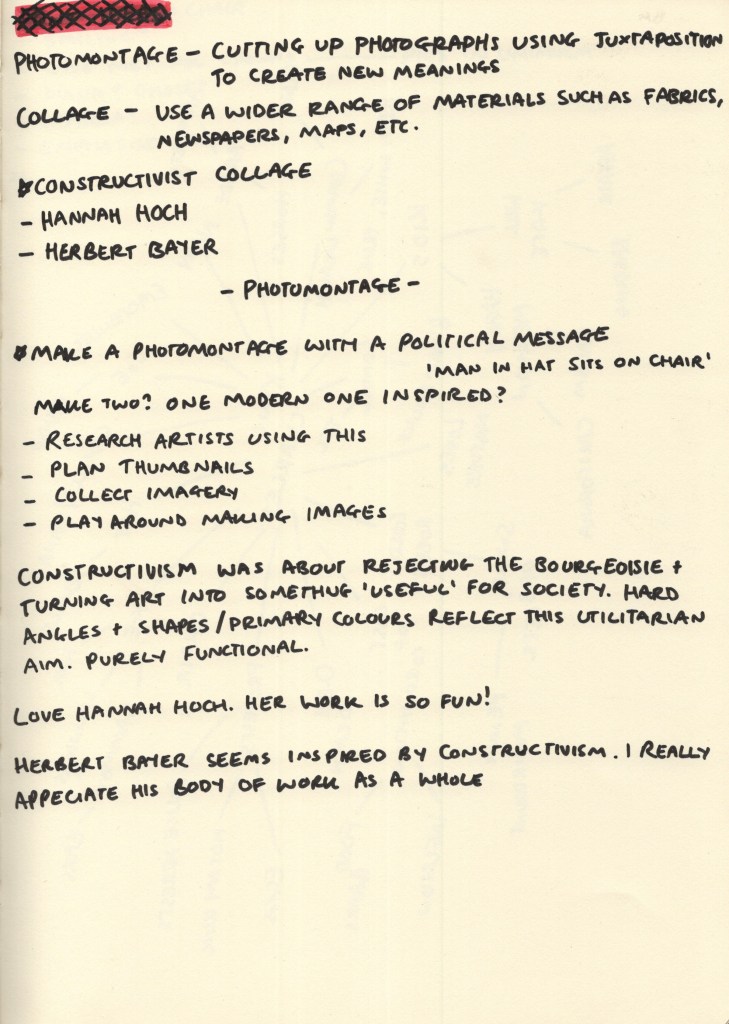 PHOTOMONTAGE - CUTTING UP PHOTOGRAPHS USING JUXTAPOSITION
TO CREATE NEW MEANINGS
COLLAGE - USE A WIDER RANGE OF MATERIALS SUCH AS FABRICS,
NEWSPAPERS, MAPS, ETC.
CONSTRUCTIVIST COLLAGE
- HANNAH HOCH
- HERBERT BAYER
- PHOTOMONTAGE -
MAKE A PHOTOMONTAGE WITH A POLITICAL MESSAGE
'MAN IN HAT SITS ON CHAIR'
MAKE TWO? ONE MODERN ONE INSPIRED?
- RESEARCH ARTISTS USING THIS
- PLAN THUMBNAILS
- COLLECT IMAGERY
- PLAY AROUND MAKING IMAGES
CONSTRUCTIVISM WAS ABOUT REJECTING THE BOURGEOISIE +
TURNING ART INTO SOMETHUG 'USEFUL' FOR SOCIETY. HARD
ANGLES + SHAPES/PRIMARY COLOURS REFLECT THIS UTILITARIAN
AIM. PURELY FUNCTIONAL.
LOVE HANNAH HOCH. HER WORK IS SO FUN!
HERBERT BAYER SEEMS INSPIRED BY CONSTRUCTIVISM. I REALLY
APPECIATE HIS BODY OF WORK AS A WHOLE